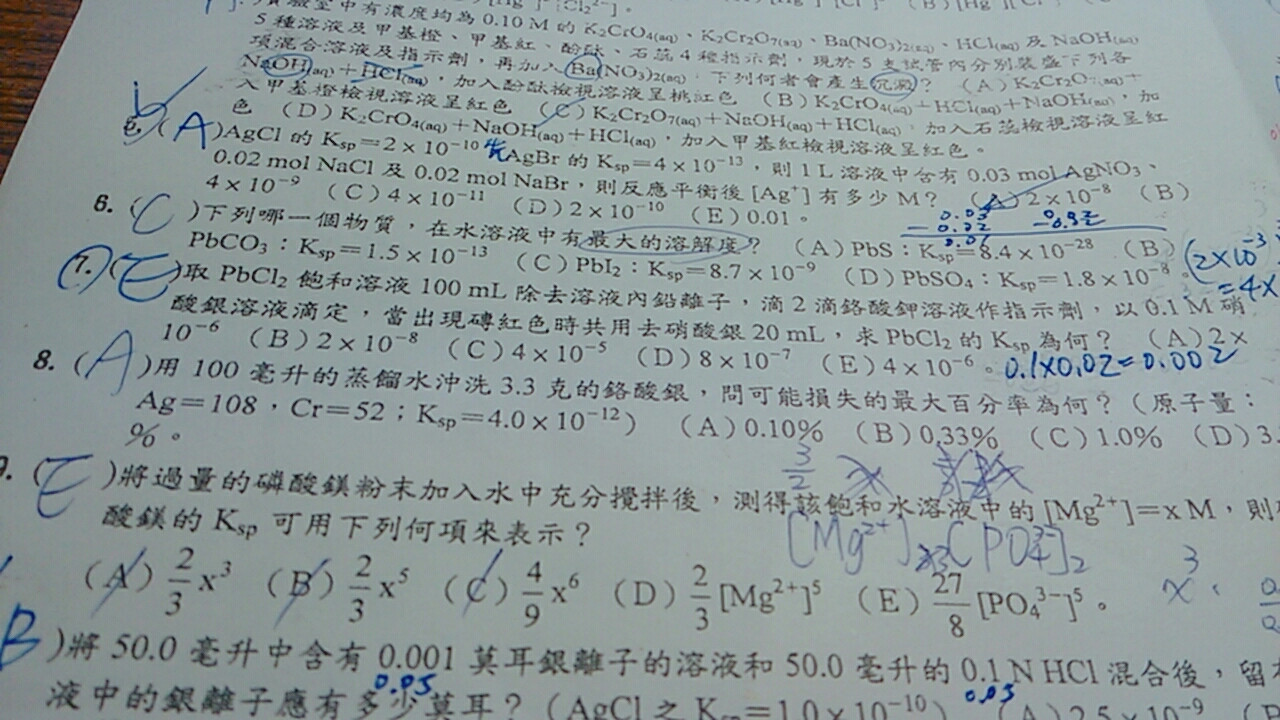 驗室中有濃度均為 0.10 M 的 K₂CrO₄(aq)、K₂Cr₂O₇(aq)、Ba(NO₃)₂(aq)、HCl(aq) 及 NaOH(aq)
5 種溶液及甲基橙、甲基紅、酚酞、石蕊 4 種指示劑,現於 5 支試管內分別裝盛下列各
項混合溶液及指示劑,再加入 Ba(NO₃)₂(aq),下列何者會產生沉澱? (A) K₂Cr₂O₇(aq)+
NaOH(aq)+HCl(aq),加入酚酞檢視溶液呈桃紅色 (B) K₂CrO₄(aq)+HCl(aq)+NaOH(aq),加
入甲基橙檢視溶液呈紅色 (C) K₂Cr₂O₇(aq)+NaOH(aq)+HCl(aq),加入石蕊檢視溶液呈紅
色 (D) K₂CrO₄(aq)+NaOH(aq)+HCl(aq),加入甲基紅檢視溶液呈紅色。
(A)AgCl 的 Ksp=2×10⁻¹⁰ 先AgBr 的 Ksp=4×10⁻¹³,則 1 L 溶液中含有 0.03 mol AgNO₃、
0.02 mol NaCl 及 0.02 mol NaBr,則反應平衡後 [Ag⁺] 有多少 M? (A) 2×10⁻⁸ (B)
4×10⁻⁹ (C) 4×10⁻¹¹ (D) 2×10⁻¹⁰ (E) 0.01。
6. (C)下列哪一個物質,在水溶液中有最大的溶解度? (A) PbS:Ksp=8.4×10⁻²⁸ (B)
PbCO₃:Ksp=1.5×10⁻¹³ (C) PbI₂:Ksp=8.7×10⁻⁹ (D) PbSO₄:Ksp=1.8×10⁻⁸。
(2×10⁻³
=4×
7. (E)取 PbCl₂ 飽和溶液 100 mL 除去溶液內鉛離子,滴 2 滴鉻酸鉀溶液作指示劑,以 0.1 M 硝
酸銀溶液滴定,當出現磚紅色時共用去硝酸銀 20 mL,求 PbCl₂ 的 Ksp 為何? (A) 2×
10⁻⁶ (B) 2×10⁻⁸ (C) 4×10⁻⁵ (D) 8×10⁻⁷ (E) 4×10⁻⁶。 0.1×0.02=0.002
8. (A)用 100 毫升的蒸餾水沖洗 3.3 克的鉻酸銀,問可能損失的最大百分率為何?(原子量:
Ag=108,Cr=52;Ksp=4.0×10⁻¹²) (A) 0.10% (B) 0.33% (C) 1.0% (D) 3.
%。
9. (E)將過量的磷酸鎂粉末加入水中充分攪拌後,測得該飽和水溶液中的 [Mg²⁺]=x M,則
酸鎂的 Ksp 可用下列何項來表示?
[Mg²⁺]₃[PO₄³⁻]₂
(A) 2/3 x³ (B) 2/3 x⁵ (C) 4/9 x⁶ (D) 2/3 [Mg²⁺]⁵ (E) 27/8 [PO₄³⁻]⁵。
x³
B)將 50.0 毫升中含有 0.001 莫耳銀離子的溶液和 50.0 毫升的 0.1 N HCl 混合後,留
0.05 0.05
液中的銀離子應有多少莫耳?(AgCl 之 Ksp=1.0×10⁻¹⁰) (A) 2.5×10⁻⁹